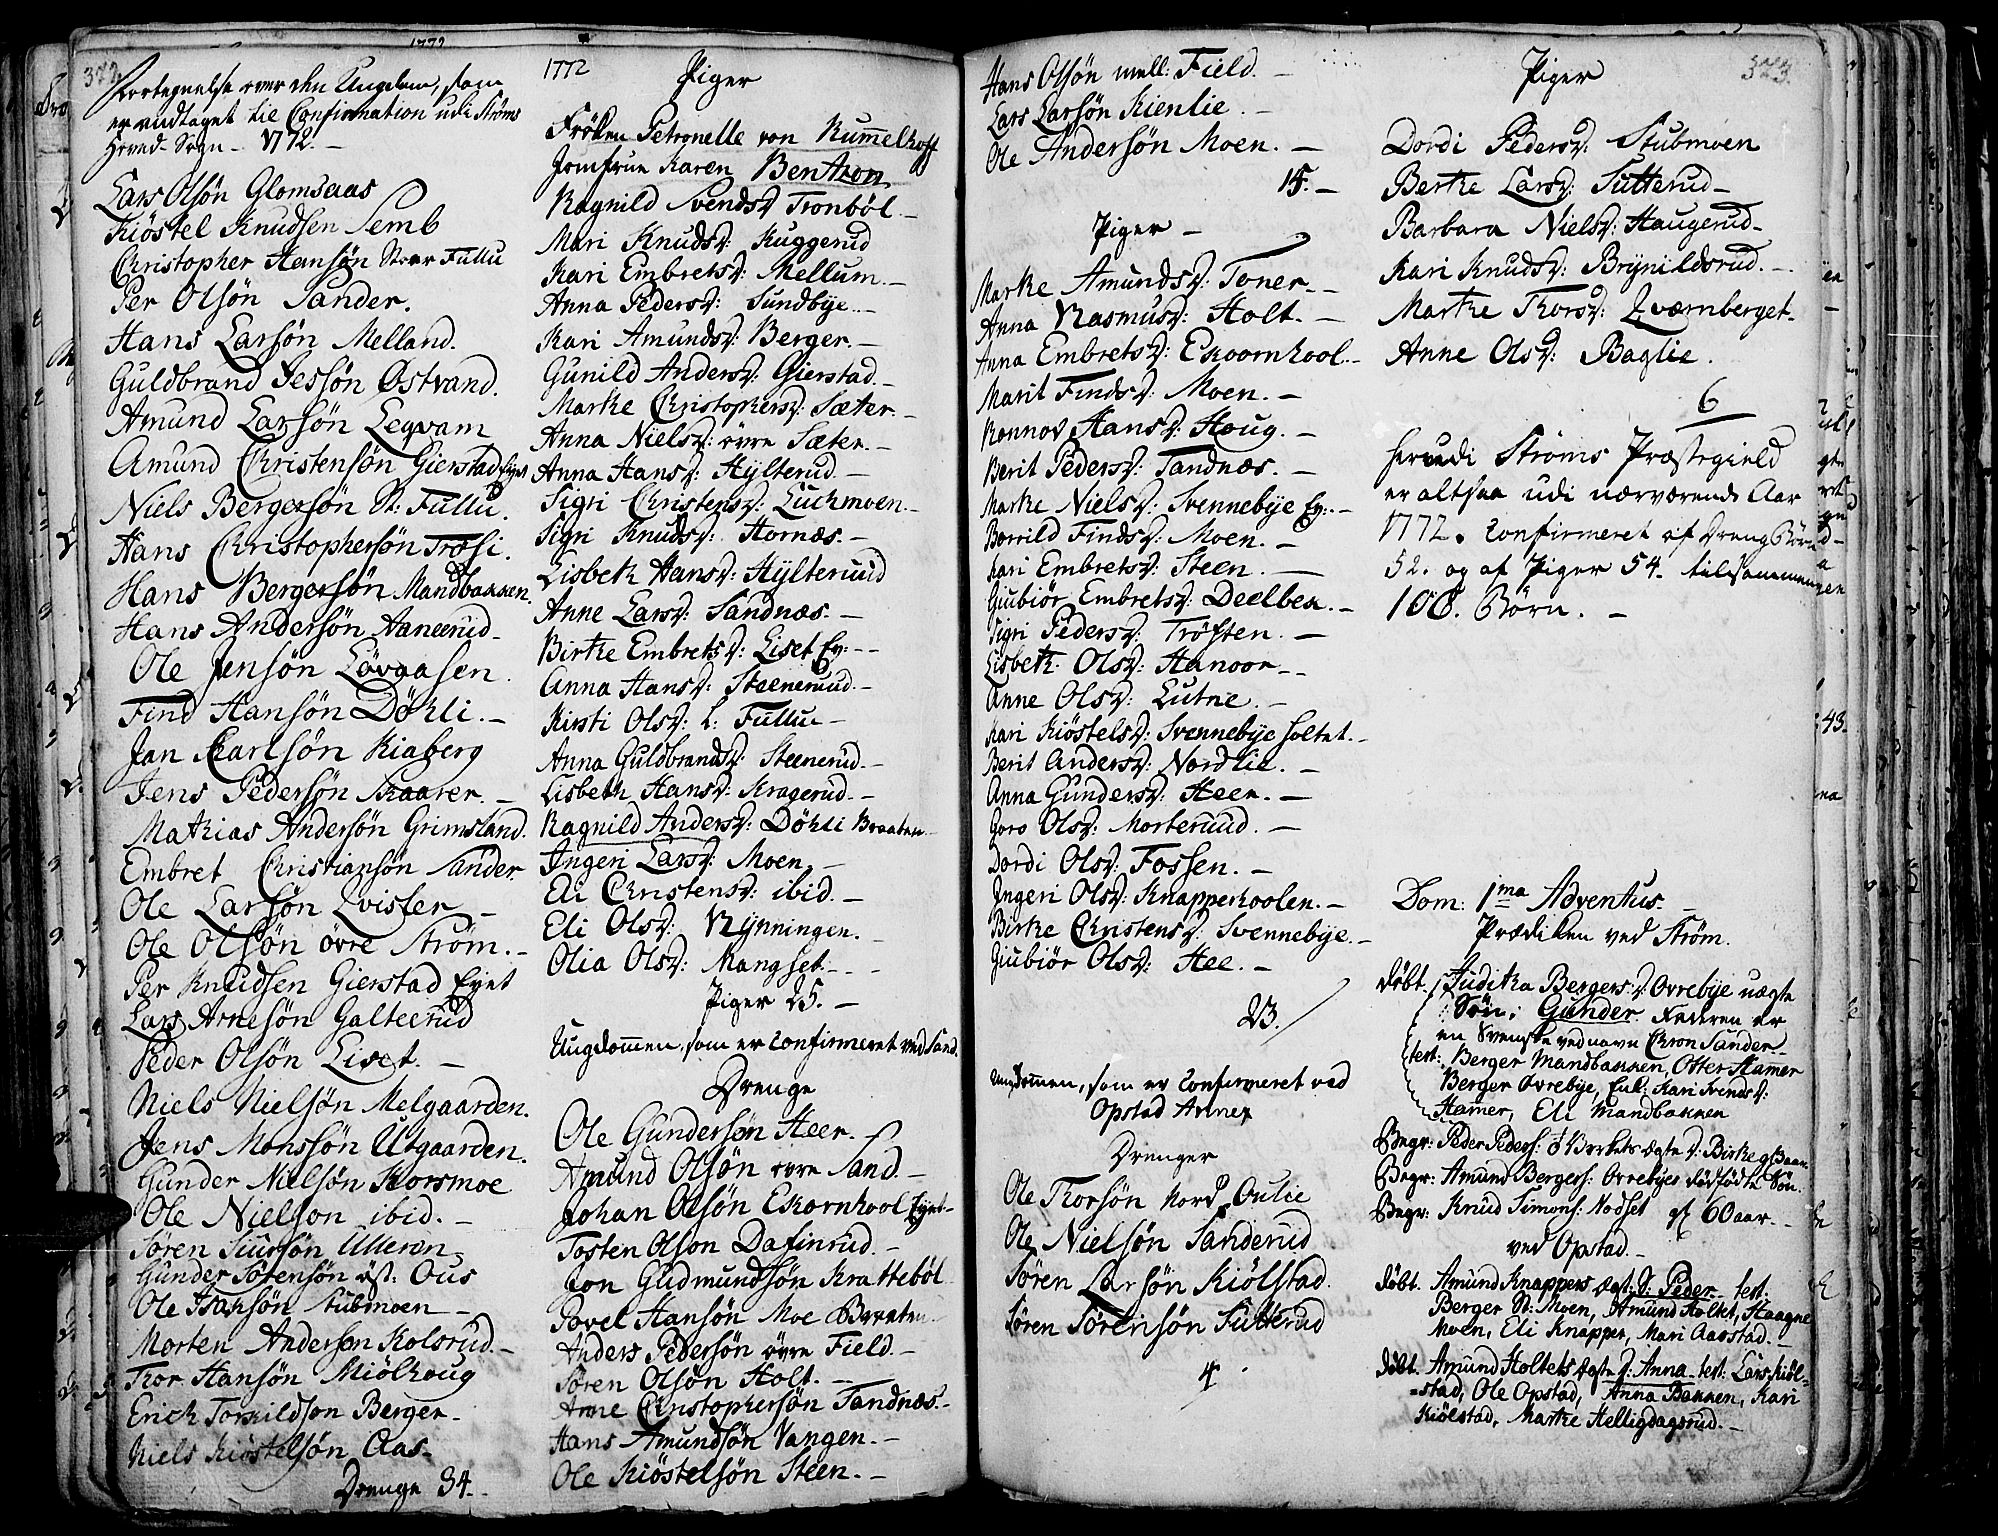 1772
372
Fortegnelse over den Ungdom, som
er andtaget til Confirmation udi Ströms
Hoved-Sogn - 1772. -
Lars Olsön Glomsaas
Kiöstel Knudsen Semb
Christopher Hansön Stoer Fullu
Per Olsön Sander.
Hans Larsön Melland.
Guldbrand Jessön Østvand.
Amund Larsön Leqvam
Amund Christensön Gierstad Eyet
Niels Bergersön St: Fullu.
Hans Christophersön Træsi.
Hans Bergersön Mandbakken.
Hans Andersön Aaneerud
Ole Jensön Lövaasen.
Find Hansön Döhli. -
Jan Carlsön Kiaberg
Jens Pedersön Skaarer. -
Mathias Andersön Grimsland.
Embret Christiansön Sander.
Ole Larsön Qvister -
Ole Olsön övre Ström. -
Per Knudsen Gierstad Eyet
Lars Arnesön Galteerud
Peder Olsön Liset. -
Niels Nielsön Melgaarden.
Jens Monssön Utgaarden.
Gunder Nielsön Korsmoe
Ole Nielson ibid. -
Sören Siursön Ulleren
Gunder Sörensön öst: Ous
Ole Isaksön Stubmoen -
Morten Anderson Kolsrud. -
Thor Hansön Miölhoug
Erich Torkildson Berger -
Niels Kiöstelsön Aas.
Drenge 34. -
1772
Piger
Fröken Petronelle von Rummelhoff
Jomfrue Karen Bentzon
Ragnild Svendsd Tronböl -
Mari Knudsd: Ruggerud
Kari Embretsd: Mellum. -
Anna Pedersd: Sundbye. -
Kari Amundsd: Berger. -
Gunild Andersd: Gierstad. -
Marthe Christophersd: Sæter. -
Anna Nielsd: övre Sæter. -
Anna Hansd: Hylterud -
Sigri Christensd: Luchmoen. -
Sigri Knudsd: Hornæs. -
Lisbeth Hansd: Hylteruud
Anne Larsd: Sandnæs. -
Birthe Embretsd: Liset Ey: -
Anna Hansd: Steenerud. -
Kirsti Olsd: L: Fullu -
Anna Guldbrandsd: Steenerud. -
Lisbeth Hansd: Kragerud. -
Ragnild Andersd: Döhli Braaten
Ingeri Larsd: Moen -
Eli Christensd: ibid. -
Eli Olsd: Rynningen. -
Olia Olsd: Mangset. -
Piger 25. -
Ungdommen, som er Confirmeret ved Sand.
Drenge
Ole Gundersön Heer. -
Amund Olsön övre Sand. -
Johan Olsön Ekornhool Eyet -
Tosten Olson Dafinrud. -
Jon Gudmundsön Kratteböl
Povel Hansön Moe Braaten
Anders Pedersön övre Field. -
Sören Olsön Holt. -
Arne Christophersön Sandnæs. -
Hans Amundsön Vangen. -
Ole Kiöstelsön Steen. -
Hans Olsön mell: Field. -
Lars Larsön Kienlie. -
Ole Andersön Moen. -
14. -
Piger -
Marthe Amundsd: Toner. -
Anna Rasmusd: Holt. -
Anna Embretsd: Ekoornhool. -
Marit Findsd: Moen. -
Ronnov Hansd: Houg. -
Berit Pedersd: Sandnæs. -
Marthe Nielsd: Svennebye Ey: -
Borrild Findsd: Moen. -
Kari Embretsd: Steen. -
Giubiör Embretsd: Deelbek. -
Sigri Pedersd: Tröften. -
Lisbeth Olsd: Hanoor -
Anne Olsd: Lutne. -
Kari Kiöstelsd: Svennebye holtet. -
Berit Andersd: Nordlie. -
Anna Gundersd: Heer. -
Goro Olsd: Morteruud. -
Dordi Olsd: Fossen. -
Ingeri Olsd: Knapperhoolen. -
Birthe Christensd: Svennebye. -
Giubiör Olsd: Hee. -
23.
Ungdommen, som er Confirmeret ved
Opstad Annex
Drenger
Ole Thorsön Nord Oulie
Ole Nielsön Sanderud
Sören Larsön Kiölstad.
Sören Sörensön Sutterud
4
323.
Piger
Dordi Pedersd: Stubmoen
Berthe Larsd: Sutterud -
Barbara Nielsd: Haugerud -
Kari Knudsd: Brynildsrud. -
Marthe Thorsd: Qværnberget -
Anne Olsd: Baglie.
6
Her udi Ströms Præstegield
er altsaa udi nærværende Aar
1772. Confirmeret af Dreng Börn
52. og af Piger 54. tilsammen
106. Börn. -
Dom: 1ma Adventus. -
Prædiken ved Ström.
döbt. Juditha Bergersd Ovrebye uægte
Sön: Gunder. Faderen er
en Svenske ved navn Chron Sander.
test: Berger Mandbakken, Otter Hamer
Berger Övrebye, Enk: Kari Svendsd:
Hamer, Eli Mandbakken
Begr: Amund Bergers: Ovrebyes dödfödte Sön.
Begr: Knud Simons: Nodset gl 60 aar. -
ved Opstad. -
döbt. Amund Knappers ægt: S: Peder test:
Berger St: Moen, Amund Holtet, Haagne
Moen, Eli Knapper, Mari Aarstad. -
döbt. Amund Holtets ægte D: Anna. test: Lars Kiöl-
-stad, Ole Opstad, Anna Bakken, Kari
Kiölstad, Marthe Helligdagsrud. -